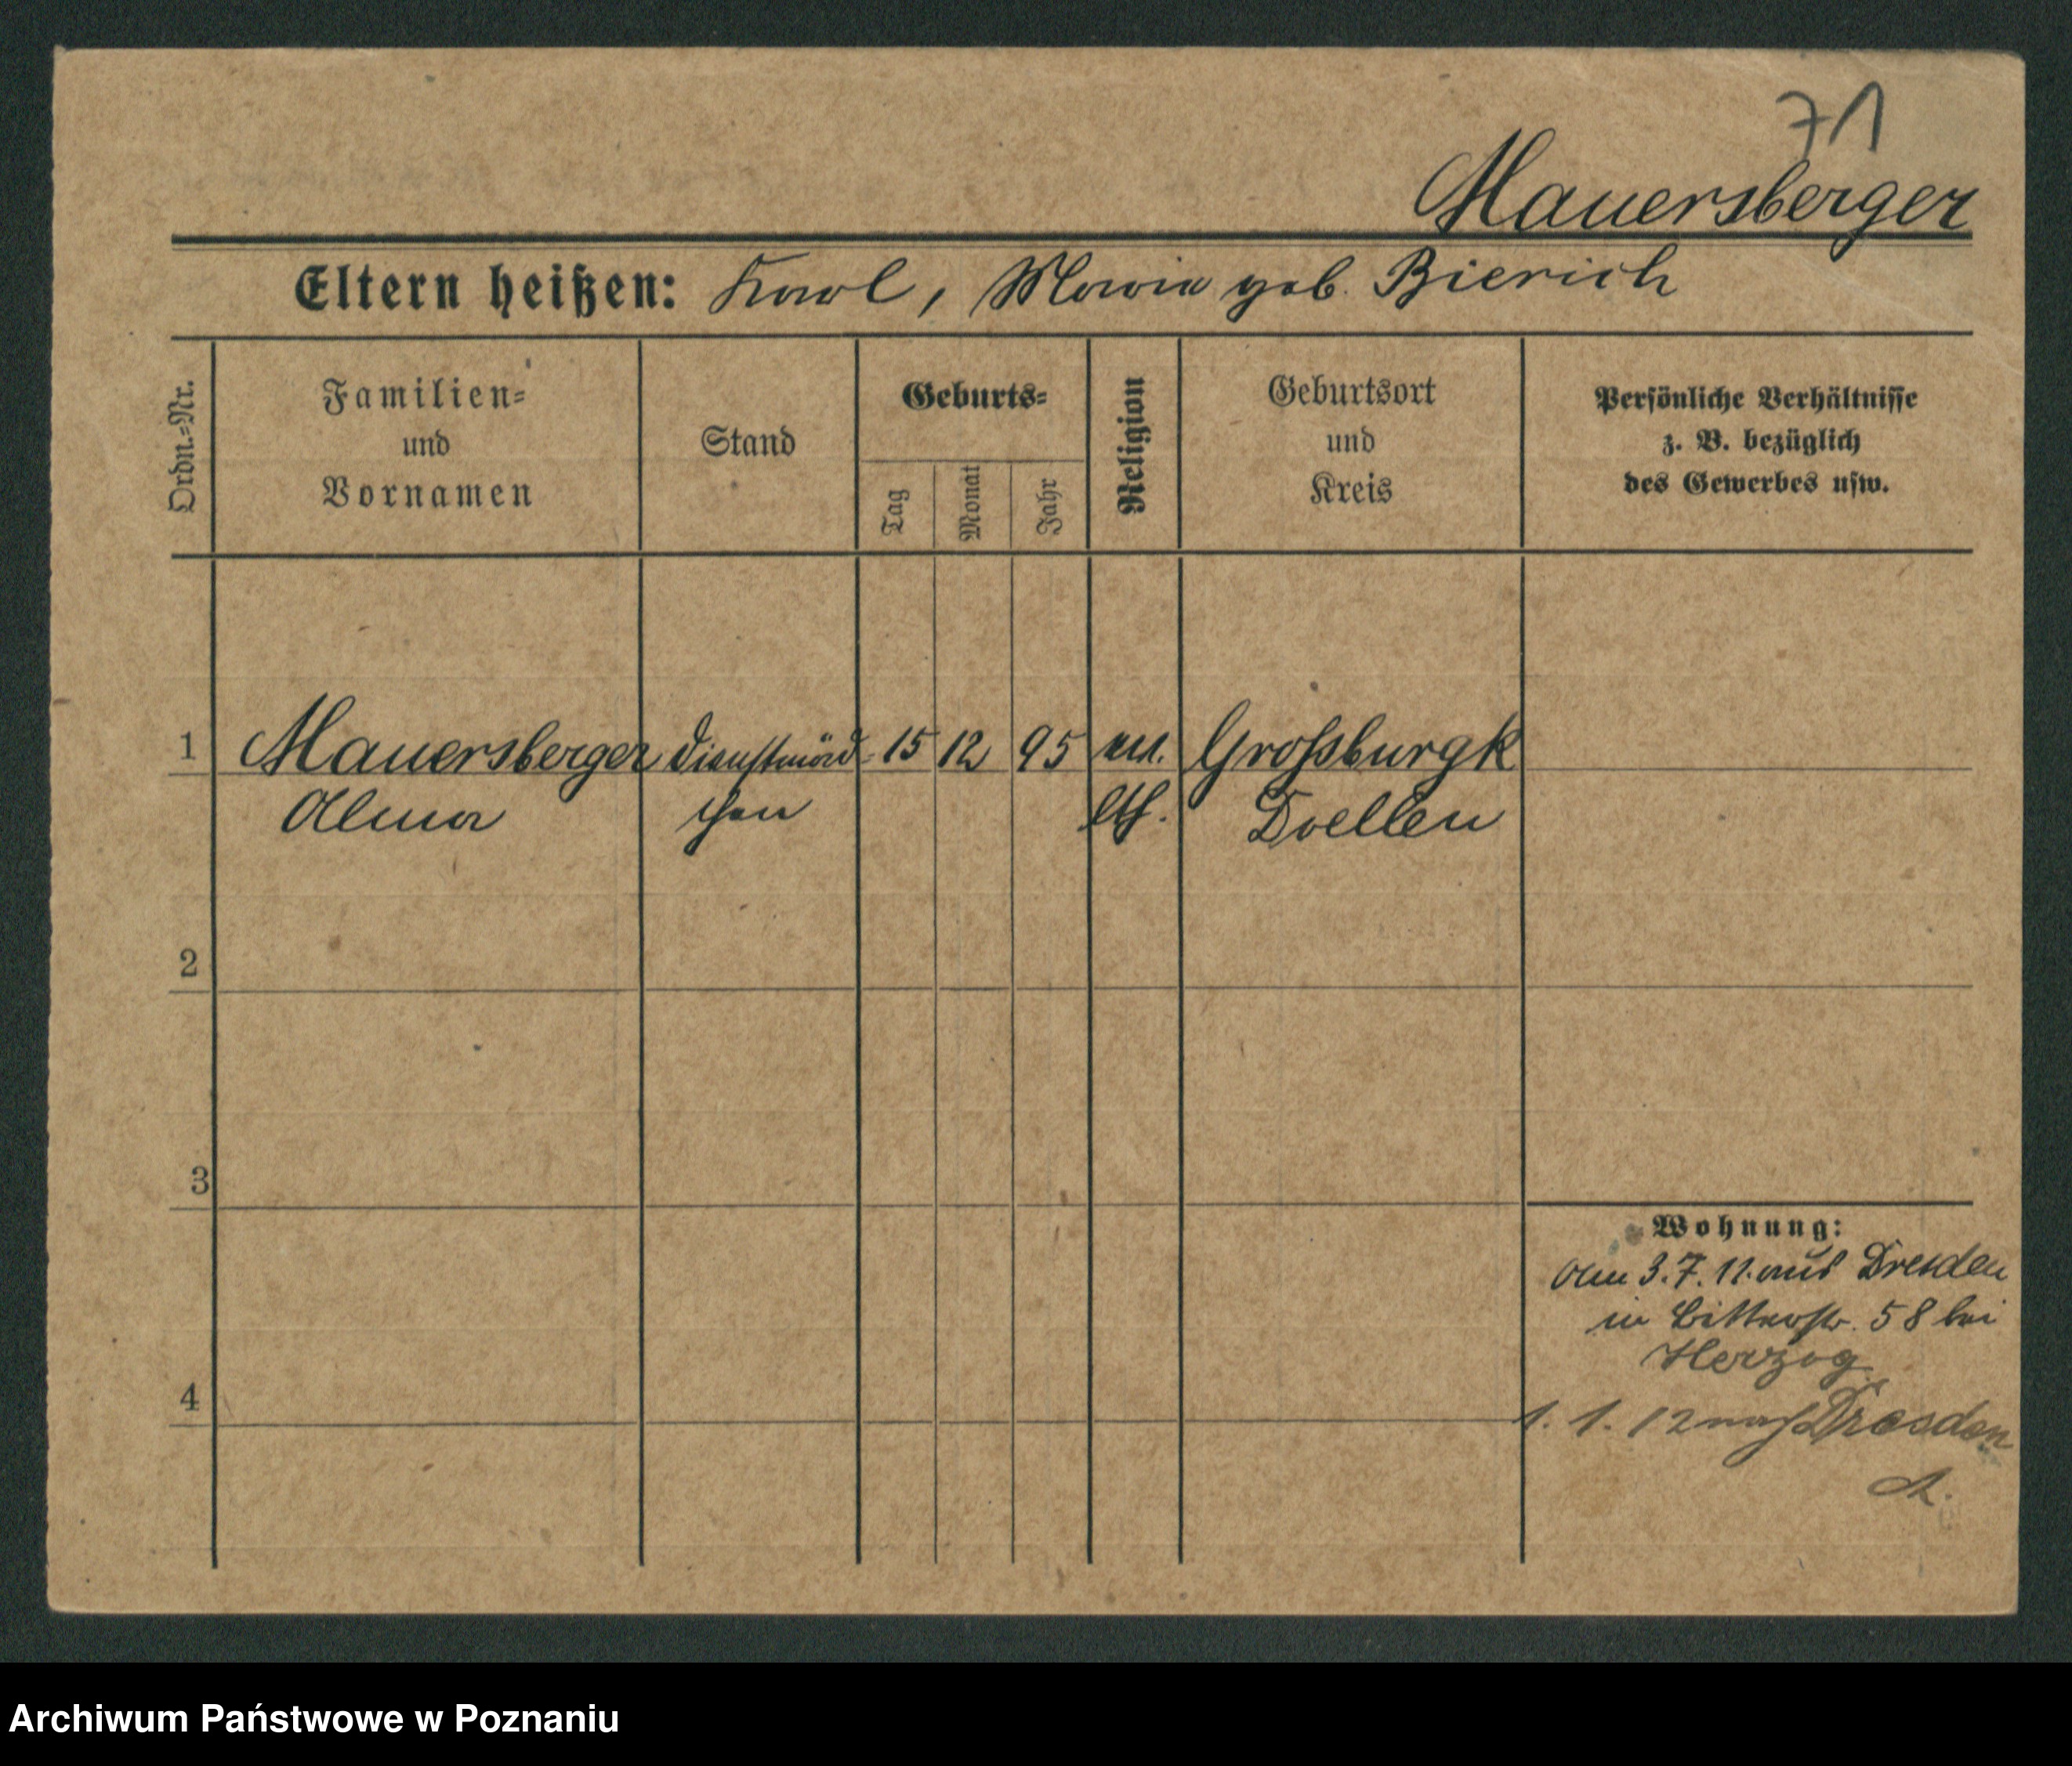 71
Mauersberger
Eltern heißen: Karl, Maria geb. Bierich
Ordn.=Nr.
Familien=
und
Vornamen
Stand
Geburts=
Tag
Monat
Jahr
Religion
Geburtsort
und
Kreis
Persönliche Verhältnisse
z. B. bezüglich
des Gewerbes usw.
1 Mauersberger Dienstmäd= 15 12 95 ev. Großburgk
Alma chen lth. Doellen
2
3
4
Wohnung:
Am 3.7.11. aus Dresden
in Bitterstr. 58 bei
Herzog
1. 1. 12 nach Dresden
Archiwum Państwowe w Poznaniu